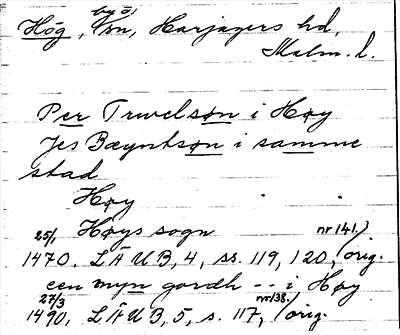 by o.
Hög, sn, Harjagers hd,
Malm. l.
Per Trwelsøn i Høy
Jes Bæyntsøn i samme
stad
Høy
Høys sogn nr 141.)
25/1 1470. LÄUB, 4, ss. 119, 120, (orig.
een myn gordh -- i Høy
27/3 1490. LÄUB, 5, s. 117, nr 138. (orig.